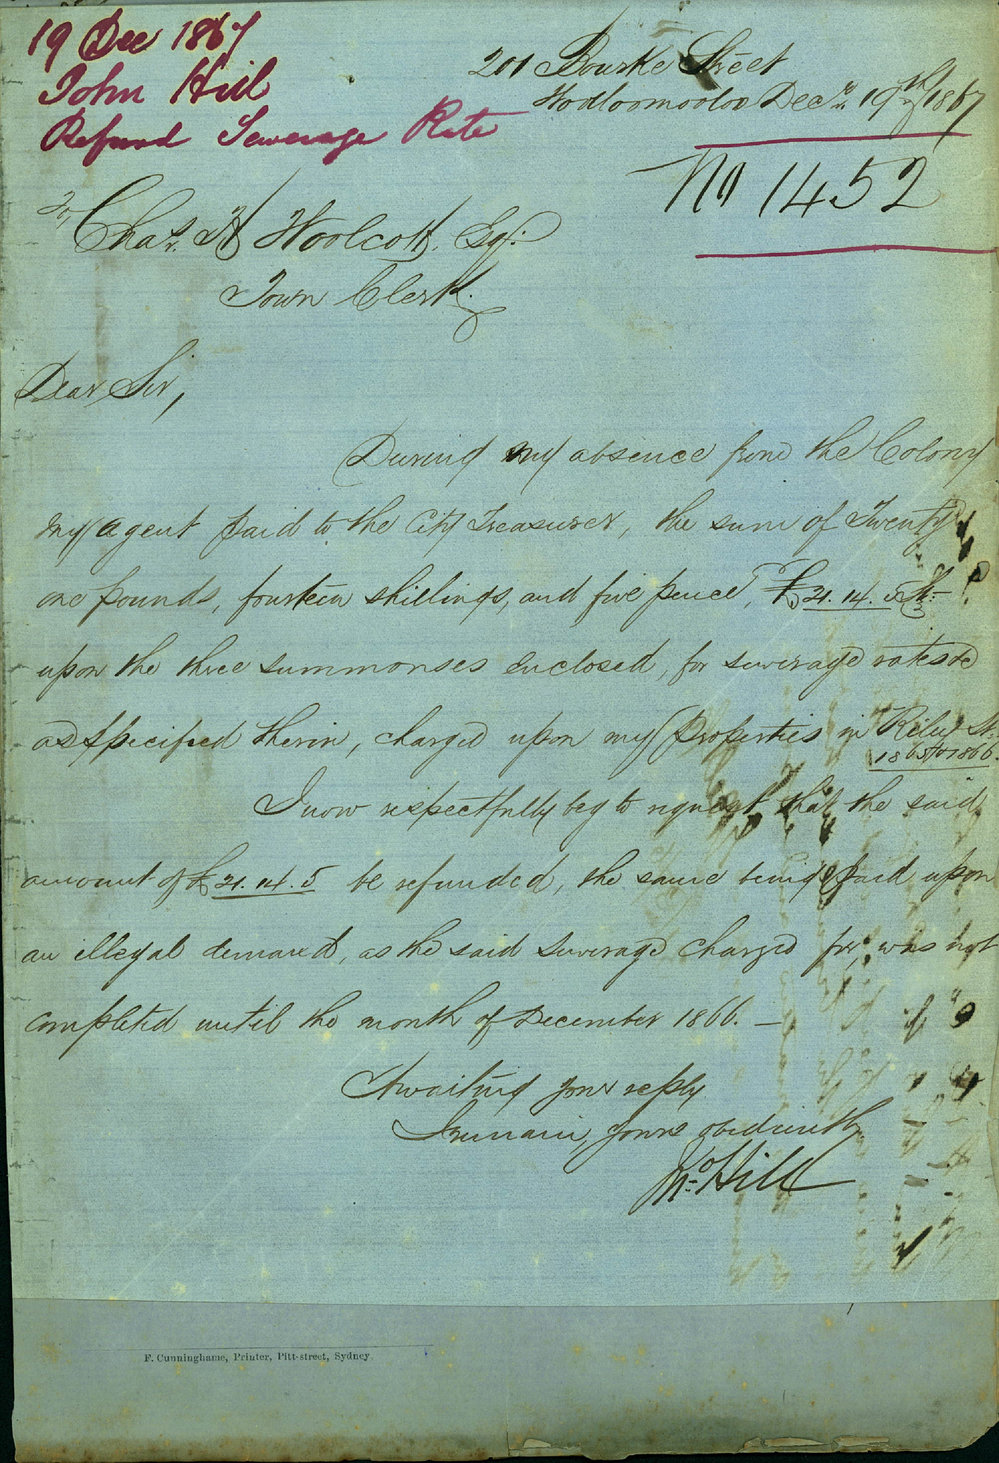 19 Dec 1867
John Hill
Refund Sewerage Rate
201 Bourke Street
Woolloomooloo Decr. 19th 1867
No 1452
To, Chas. H Woolcott, Esq:
Town Clerk.
Dear Sir,
During my absence from the Colony
my agent paid to the City Treasurer, the sum of Twenty
one pounds, fourteen shillings, and five pence, £21.14.5
upon the three summonses enclosed, for sewerage rates &c
as specified therin, charged upon my properties in Riley St.
1865 to 1866.
I now respectfully beg to request that the said
amount of £21.14.5 be refunded, the same being paid upon
an illegal demand, as the said sewerage charged for, was not
completed until the month of December 1866. —
Awaiting your reply
I remain, yours obediently.
Jno. Hill
F. Cunninghame, Printer, Pitt-street, Sydney.